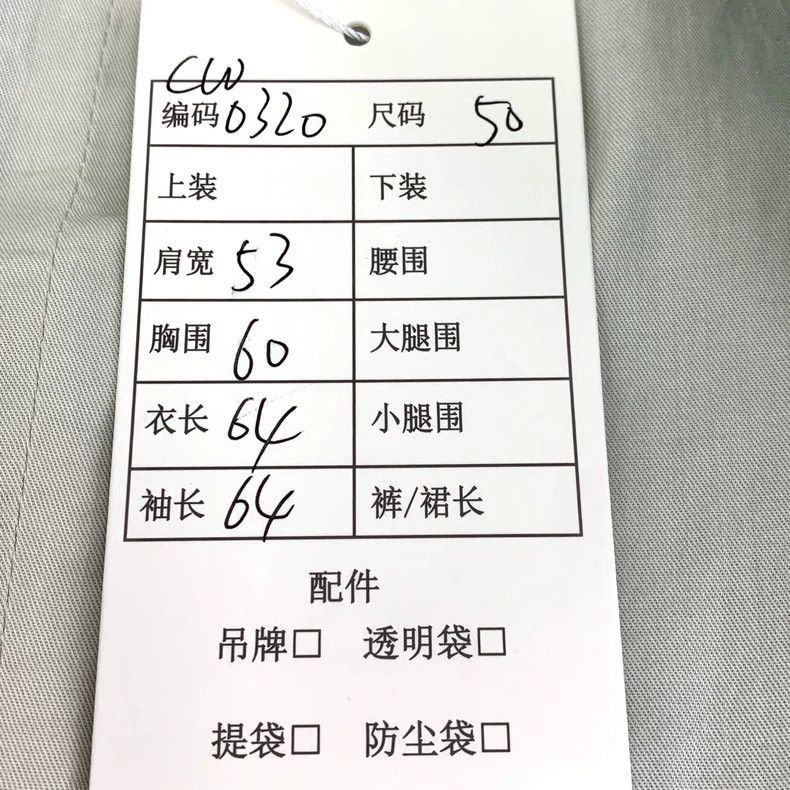 CW
编码 0320 尺码 50
上装 下装
肩宽 53 腰围
胸围 60 大腿围
衣长 64 小腿围
袖长 64 裤/裙长
配件
吊牌□ 透明袋□
提袋□ 防尘袋□